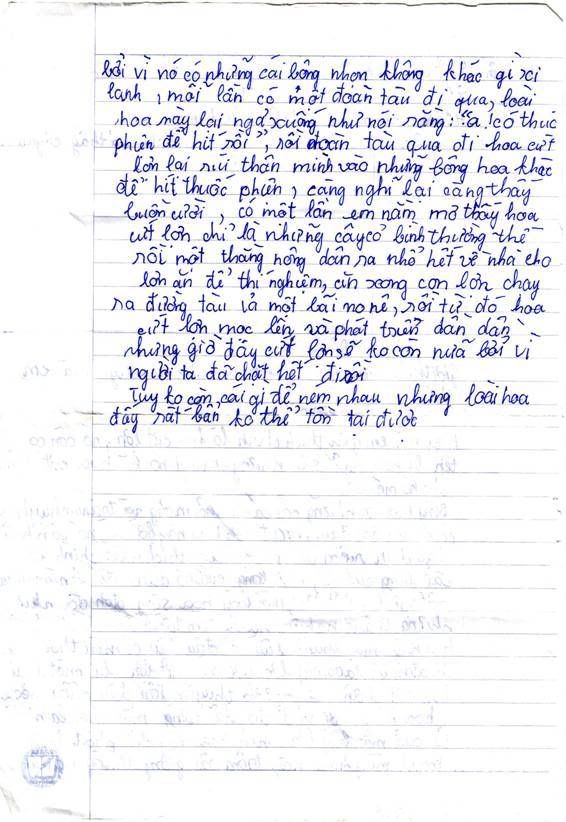 bởi vì nó có những cái bông nhọn không khác gì xi
lanh, mỗi lần có một đoàn tàu đi qua, loài
hoa này lại ngả xuống như nói rằng: "a! có thuốc
phiện để hít rồi", rồi đoàn tàu qua đi hoa cứt
lợn lại rúi thân mình vào những bông hoa khác
để hít thuốc phiện, càng nghĩ lại càng thấy
buồn cười, có một lần em nằm mơ thấy hoa
cứt lợn chỉ là những cây cỏ bình thường thế
rồi một thằng nông dân ra nhổ hết về nhà cho
lợn ăn để thí nghiệm, ăn xong con lợn chạy
ra đường tàu ỉa một bãi no nê, rồi từ đó hoa
cứt lợn mọc lên và phát triển dần dần
nhưng giờ đây cứt lợn sẽ ko còn nữa bởi vì
người ta đã chặt hết đi rồi
Tuy ko còn cái gì để ném nhau nhưng loài hoa
đấy rất bẩn ko thể tồn tại được